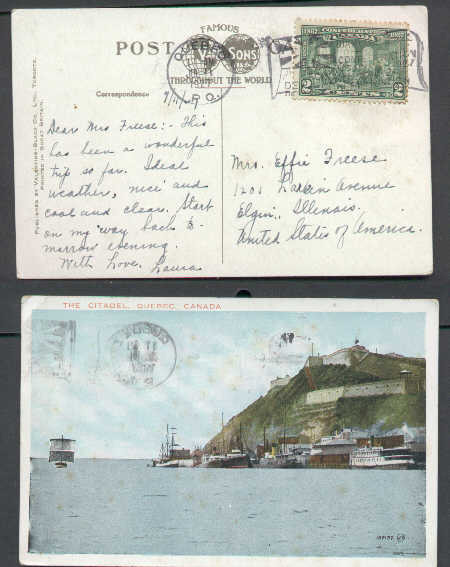 FAMOUS
POST
& SONS
THROUGHOUT THE WORLD
QUEBEC
P.Q.
CONFEDERATION
1867 1927
CANADA
2 CENTS 2
Correspondence
PUBLISHED BY VALENTINE-BLACK CO., LTD. TORONTO.
PRINTED IN GREAT BRITAIN.
Dear Mrs Freese:- This
has been a wonderful
trip so far. Ideal
weather, nice and
cool and clear. Start
on my way back to-
morrow evening.
With Love, Laura
Mrs. Effie Freese
1201 Larkin Avenue
Elgin, Illinois.
United States of America.
THE CITADEL, QUEBEC, CANADA